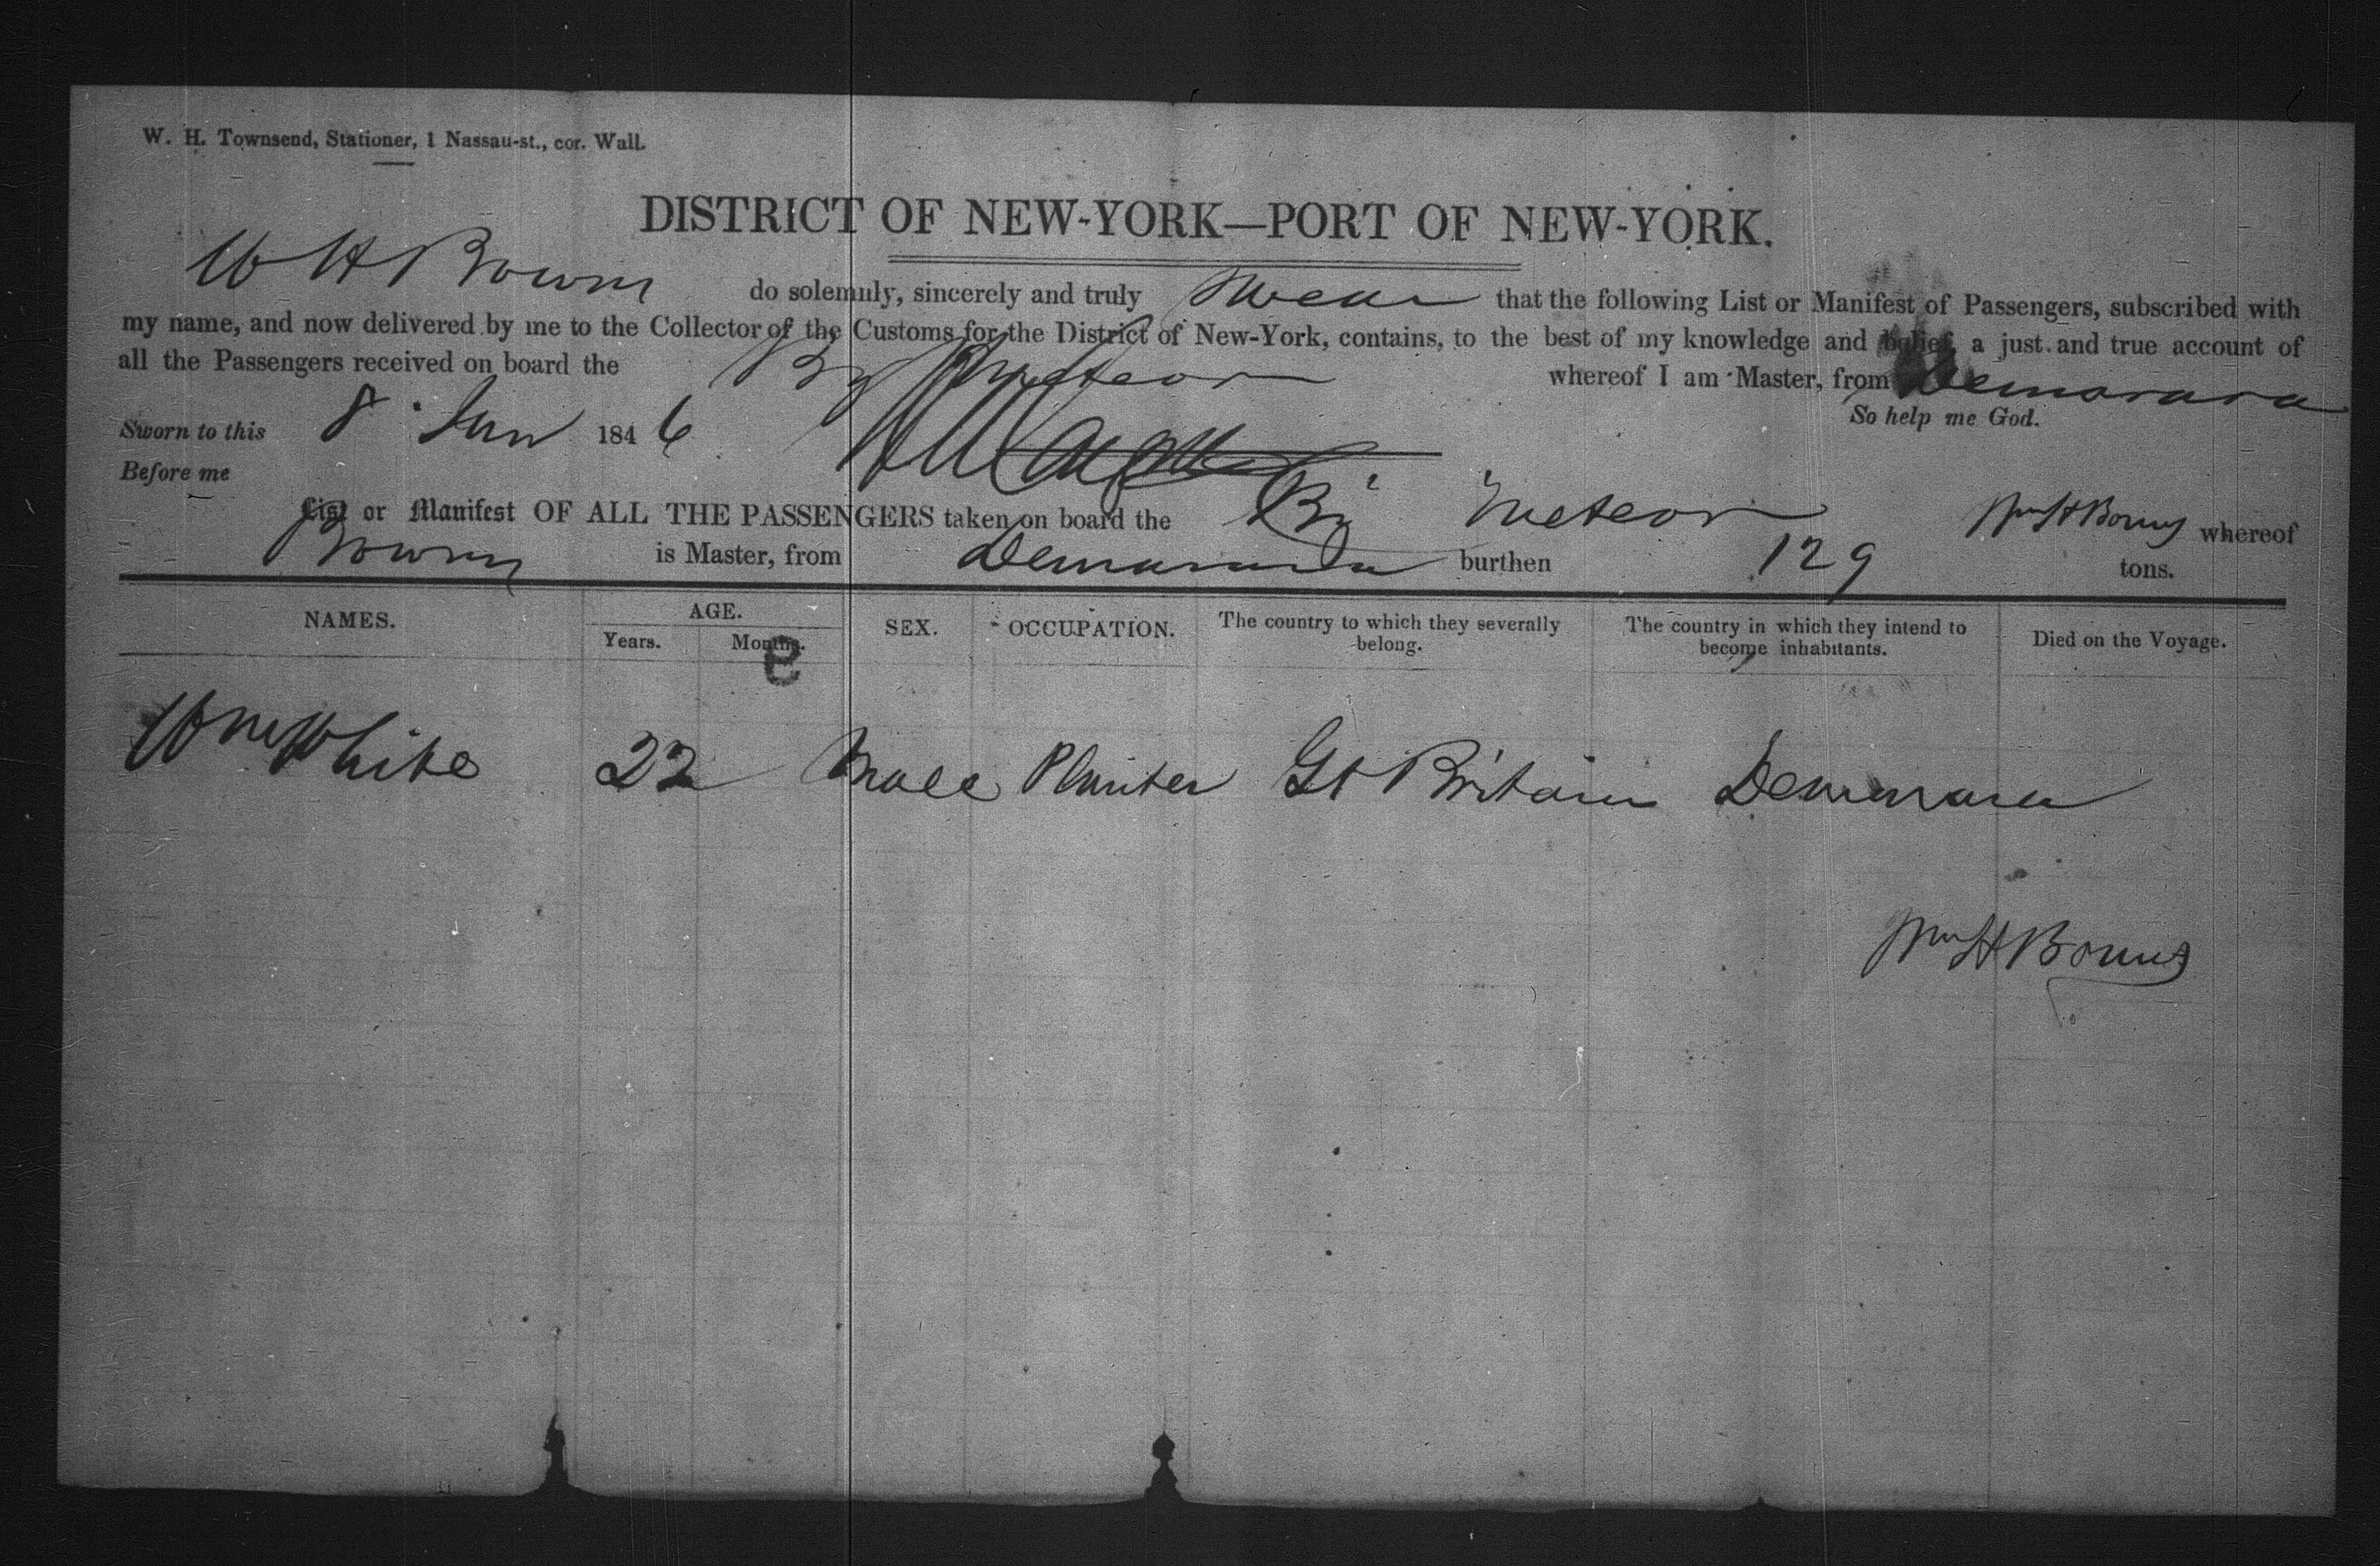 W. H. Townsend, Stationer, 1 Nassau-st., cor. Wall.
DISTRICT OF NEW-YORK—PORT OF NEW-YORK.
W H Bowns do solemnly, sincerely and truly Swear that the following List or Manifest of Passengers, subscribed with
my name, and now delivered by me to the Collector of the Customs for the District of New-York, contains, to the best of my knowledge and belief, a just and true account of
all the Passengers received on board the Brg Meteor whereof I am Master, from Demarara
So help me God.
Sworn to this 8 Jan 1846
Before me
List or Manifest OF ALL THE PASSENGERS taken on board the Br Meteor whereof
is Master, from Demarara burthen 129 tons.
NAMES. AGE. SEX. OCCUPATION. The country to which they severally belong. The country in which they intend to become inhabitants. Died on the Voyage.
Years. Months.
9
Wm White 22 Male Planter Gt Britain Demarara
Wm H Bowns